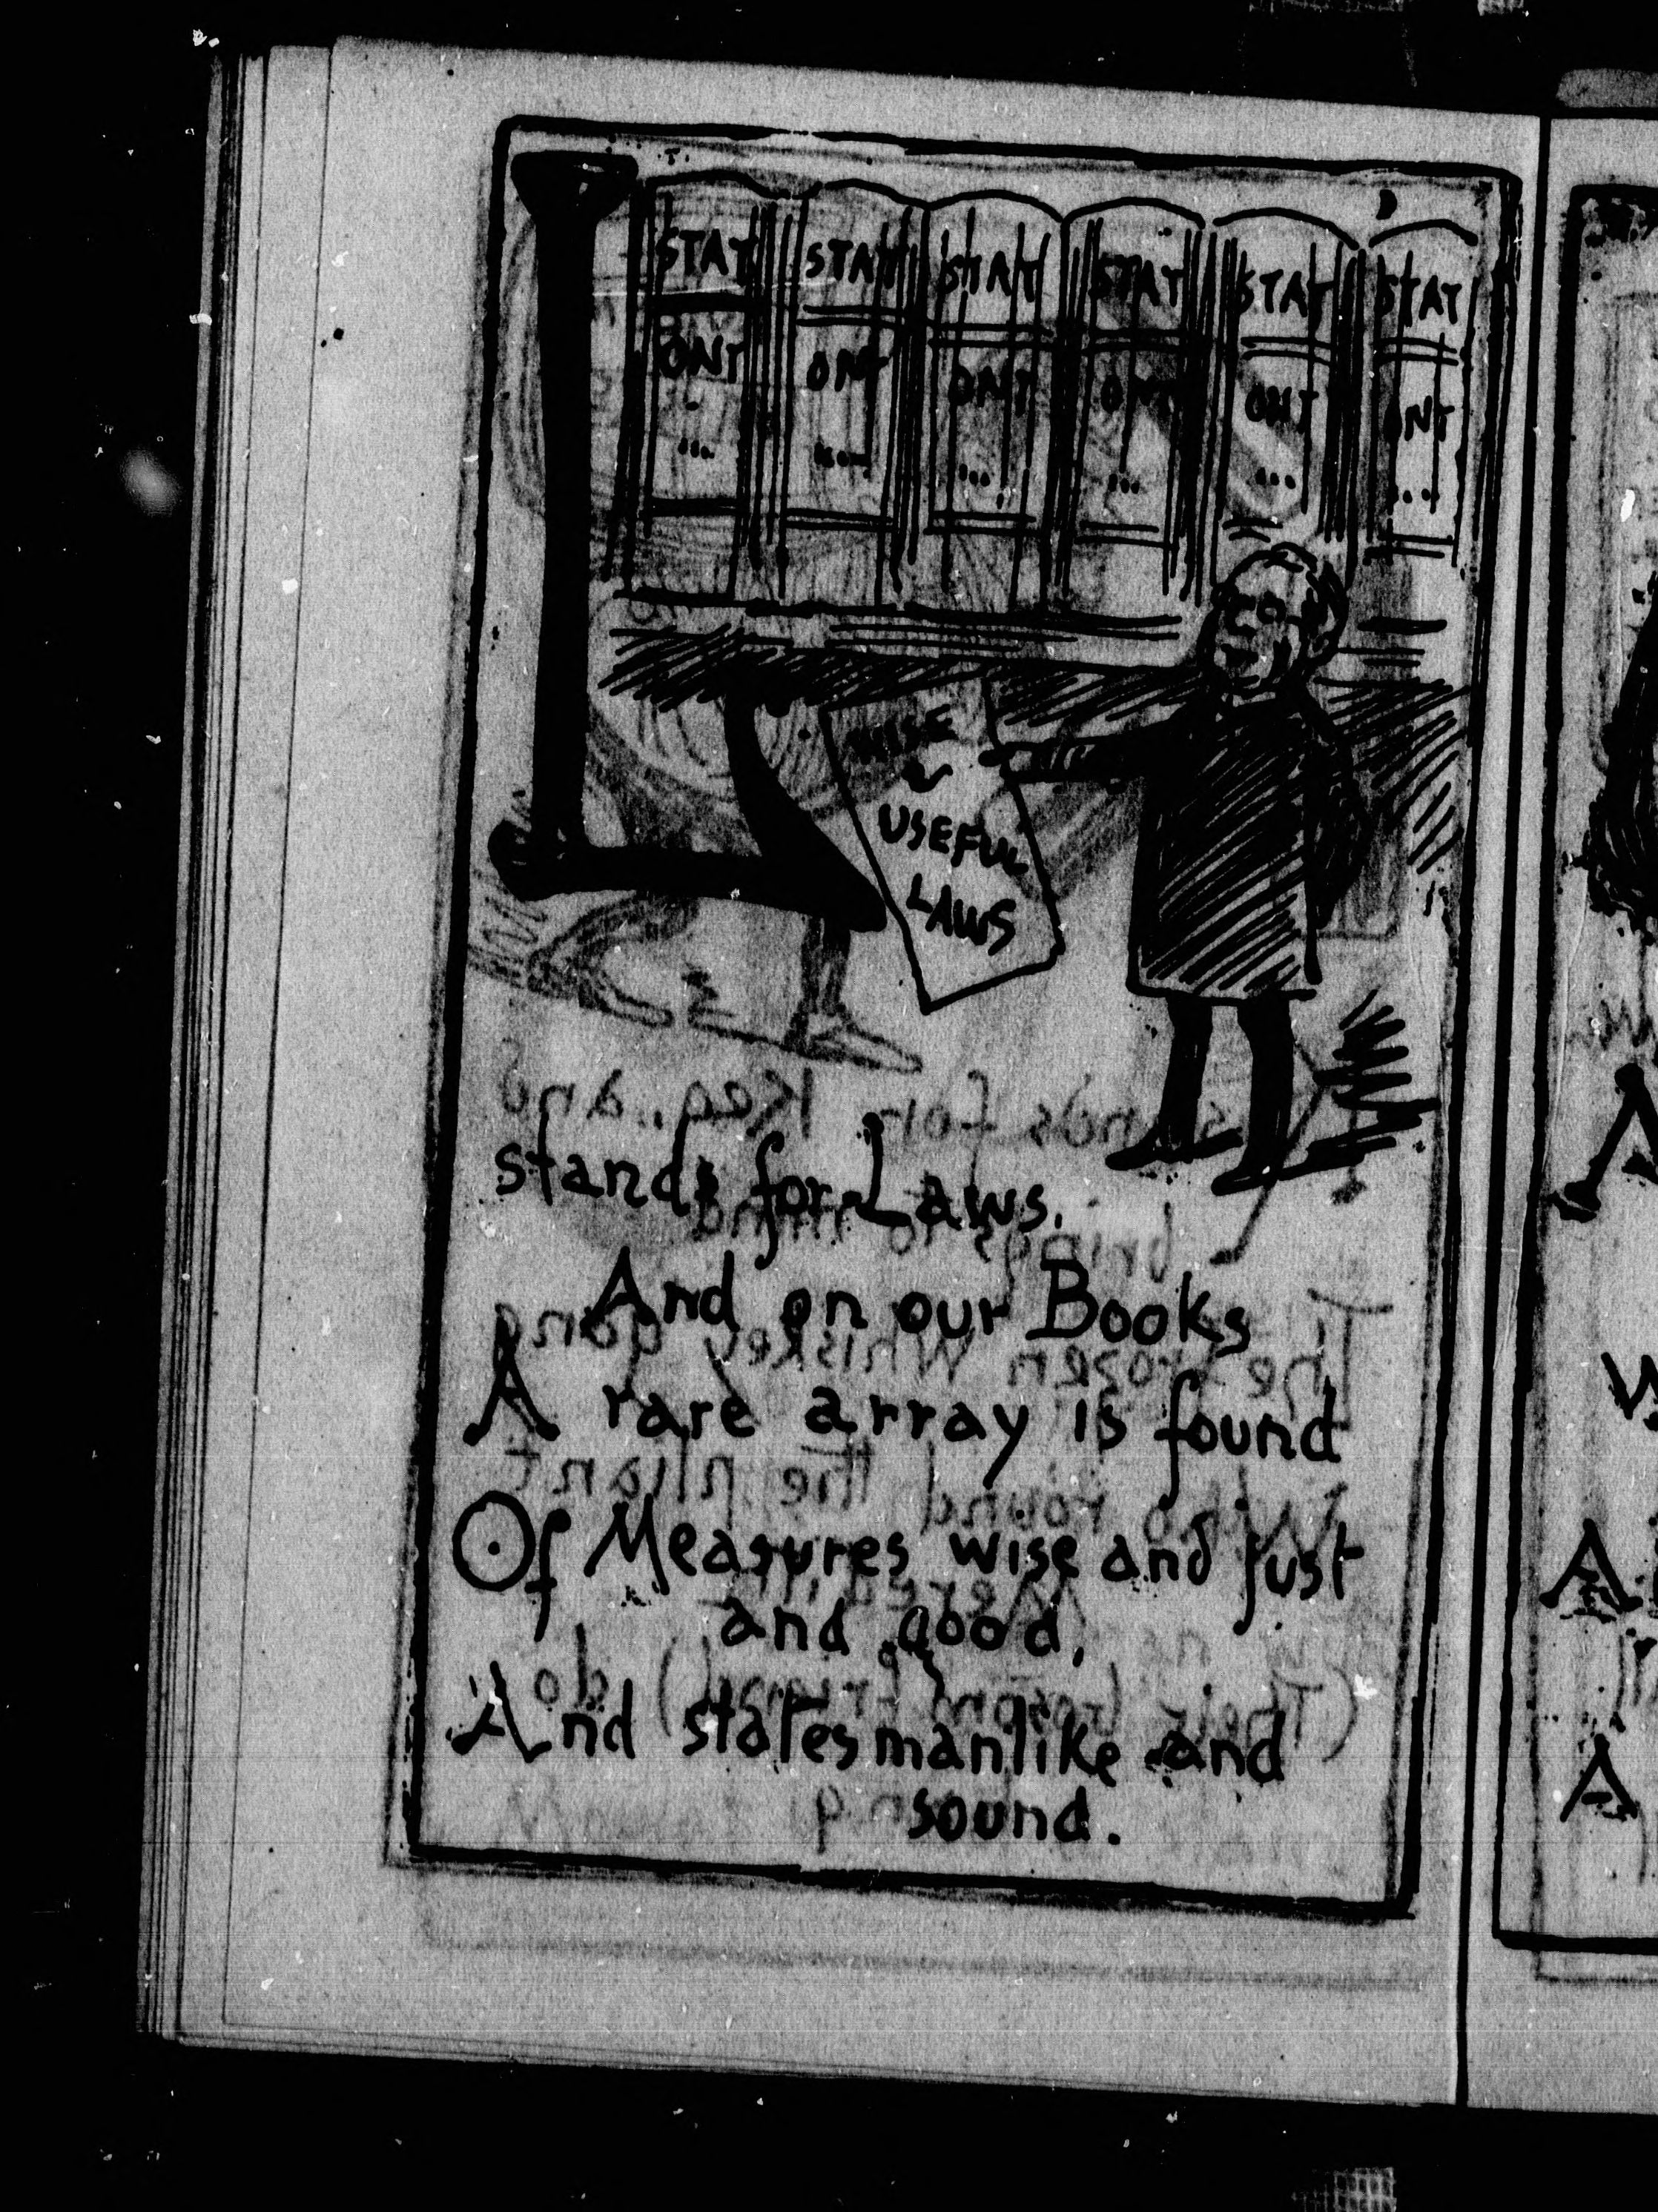 L
STAT STAT STAT STAT STAT STAT
ONT ONT ONT ONT ONT ONT
WISE
&
USEFUL
LAWS
stands for Laws.
And on our Books
A rare array is found
Of Measures wise and just
and good,
And statesmanlike and
sound.